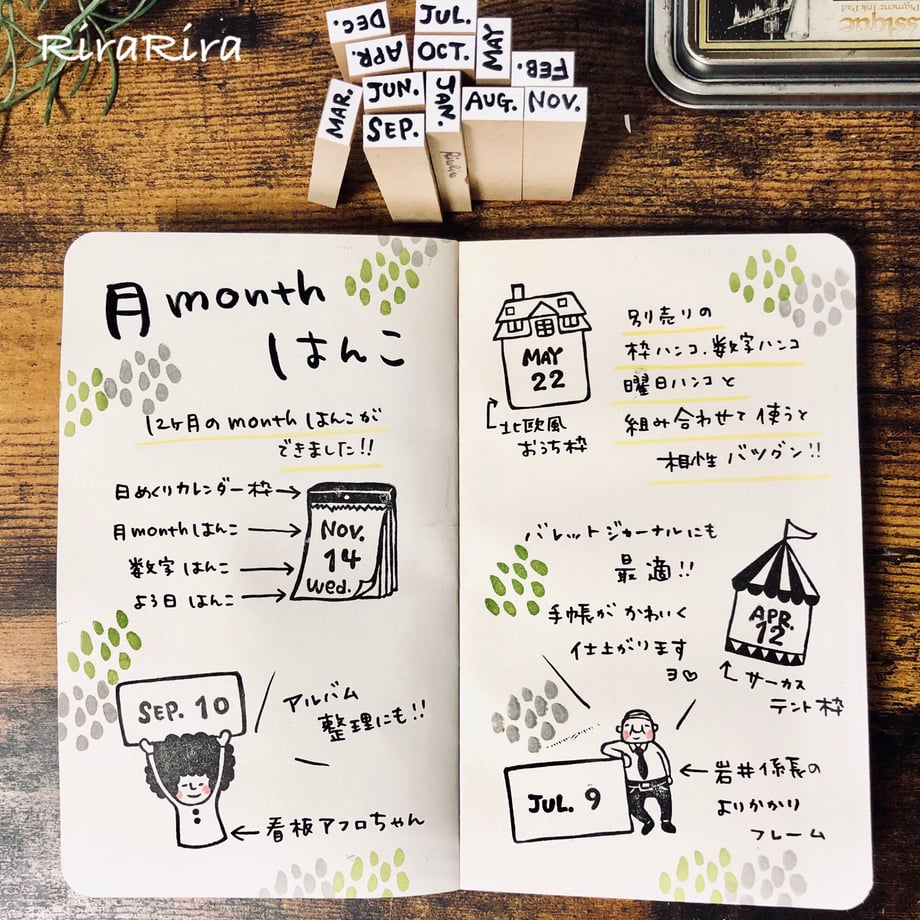 RiraRira
DEC.
JUL.
APR.
OCT.
MAY
FEB.
MAR.
JUN.
JAN.
AUG.
NOV.
SEP.
RiraRira
Pigment Ink Pad
月month
はんこ
12ヶ月のmonthはんこが
できました!!
日めくりカレンダー枠→
月monthはんこ→
数字はんこ→
よう日はんこ→
Nov.
14
Wed.
SEP. 10
アルバム
整理にも!!
←看板アフロちゃん
MAY
22
北欧風
おうち枠
別売りの
枠ハンコ、数字ハンコ
曜日ハンコと
組み合わせて使うと
相性バツグン!!
バレットジャーナルにも
最適!!
手帳がかわいく
仕上がります
ヨ♡
APR.
12
サーカス
テント枠
JUL. 9
←岩井係長の
よりかかり
フレーム